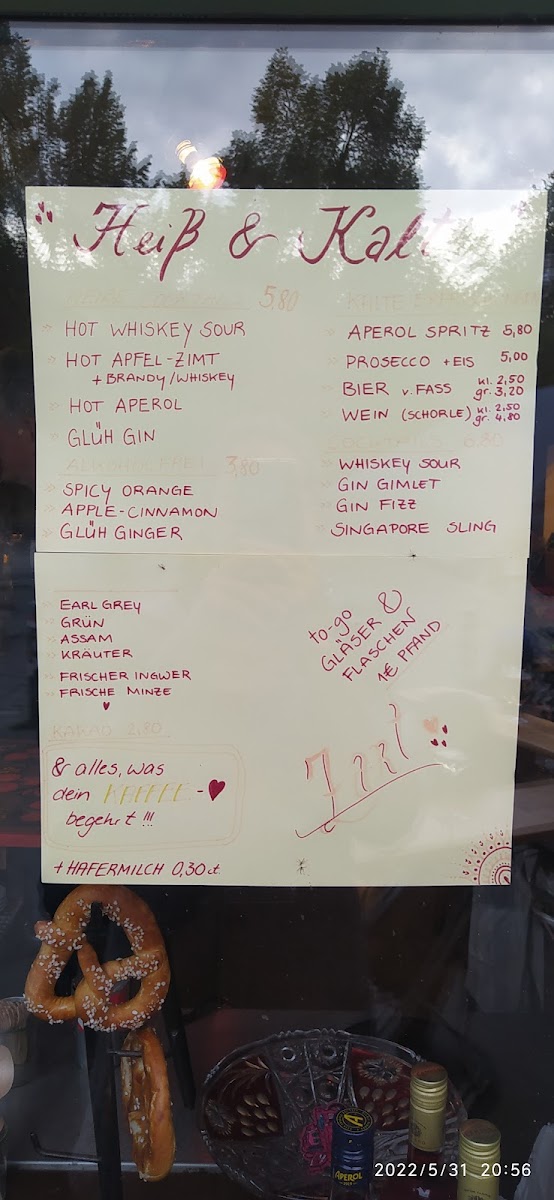 Heiß & Kalt
5,80
HOT WHISKEY SOUR
HOT APFEL-ZIMT
+ BRANDY/WHISKEY
HOT APEROL
GLÜH GIN
ALKOHOLFREI 3,80
SPICY ORANGE
APPLE-CINNAMON
GLÜH GINGER
KALTE
APEROL SPRITZ 5,80
PROSECCO + EIS 5,00
BIER v. FASS kl. 2,50
gr. 3,20
WEIN (SCHORLE) kl. 2,50
gr. 4,80
COCKTAILS 6,80
WHISKEY SOUR
GIN GIMLET
GIN FIZZ
SINGAPORE SLING
EARL GREY
GRÜN
ASSAM
KRÄUTER
FRISCHER INGWER
FRISCHE MINZE
KAKAO 2,80
& alles, was
dein KAFFEE-
begehrt!!!
+ HAFERMILCH 0,30 ct.
to-go
GLÄSER &
FLASCHEN
1€ PFAND
APEROL
2022/5/31 20:56